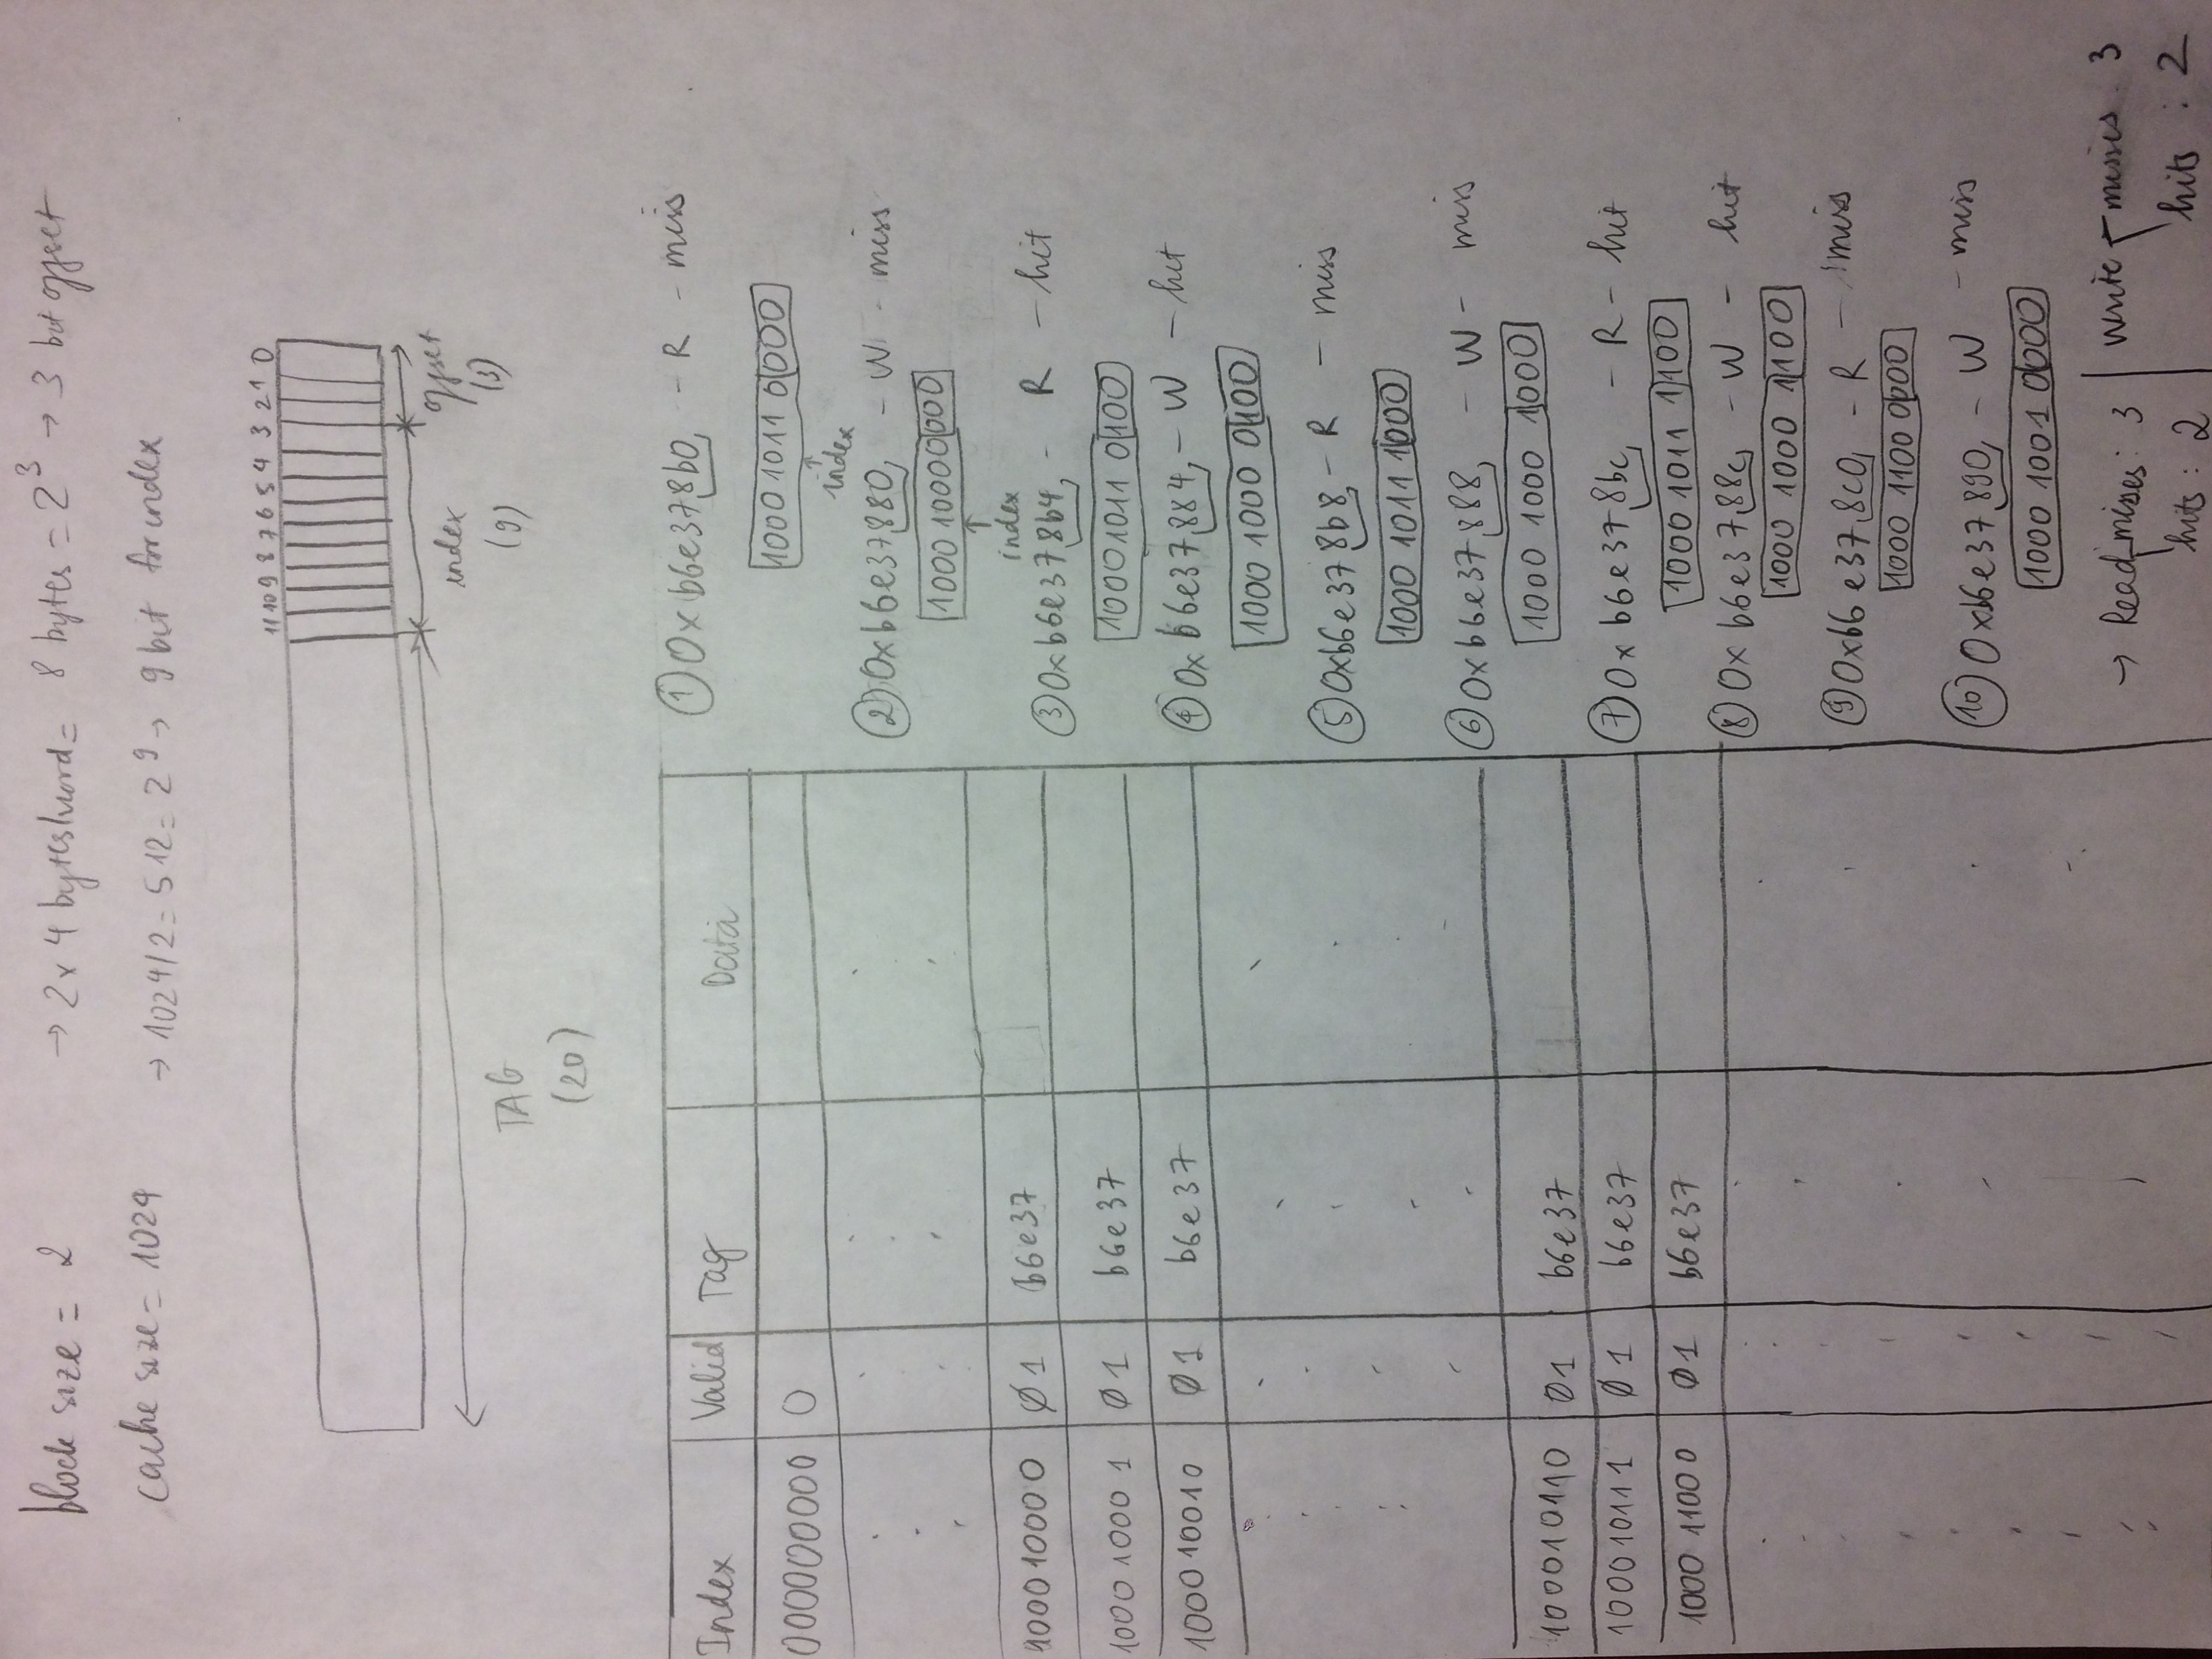 block size = 2 → 2 x 4 bytes/word = 8 bytes = 2³ → 3 bit offset
cache size = 1024 → 1024/2 = 512 = 2⁹ → 9 bit for index
11 10 9 8 7 6 5 4 3 2 1 0
index offset
(9) (3)
TAG
(20)
Index Valid Tag Data
000000000 0
100010000 0 1 b6e37
1000 1000 1 0 1 b6e37
100010010 0 1 b6e37
100010110 0 1 b6e37
100010111 0 1 b6e37
1000 11000 0 1 b6e37
① 0x b6e378b0 - R - miss
1000 1011 0 000
↑
index
② 0xb6e37880 - W - miss
1000 10000 000
↑
index
③ 0xb6e378b4 - R - hit
10001011 0 100
④ 0x b6e37884 - W - hit
1000 1000 0 100
⑤ 0xb6e378b8 - R - miss
1000 1011 1 000
⑥ 0xb6e37888 - W - miss
1000 1000 1 000
⑦ 0x b6e378bc - R - hit
1000 1011 1 100
⑧ 0x b6e3788c - W - hit
1000 1000 1 100
⑨ 0xb6e378c0 - R - miss
1000 1100 0 000
⑩ 0xb6e37890 - W - miss
1000 1001 0 000
→ Read misses : 3 | Write misses : 3
hits : 2 hits : 2